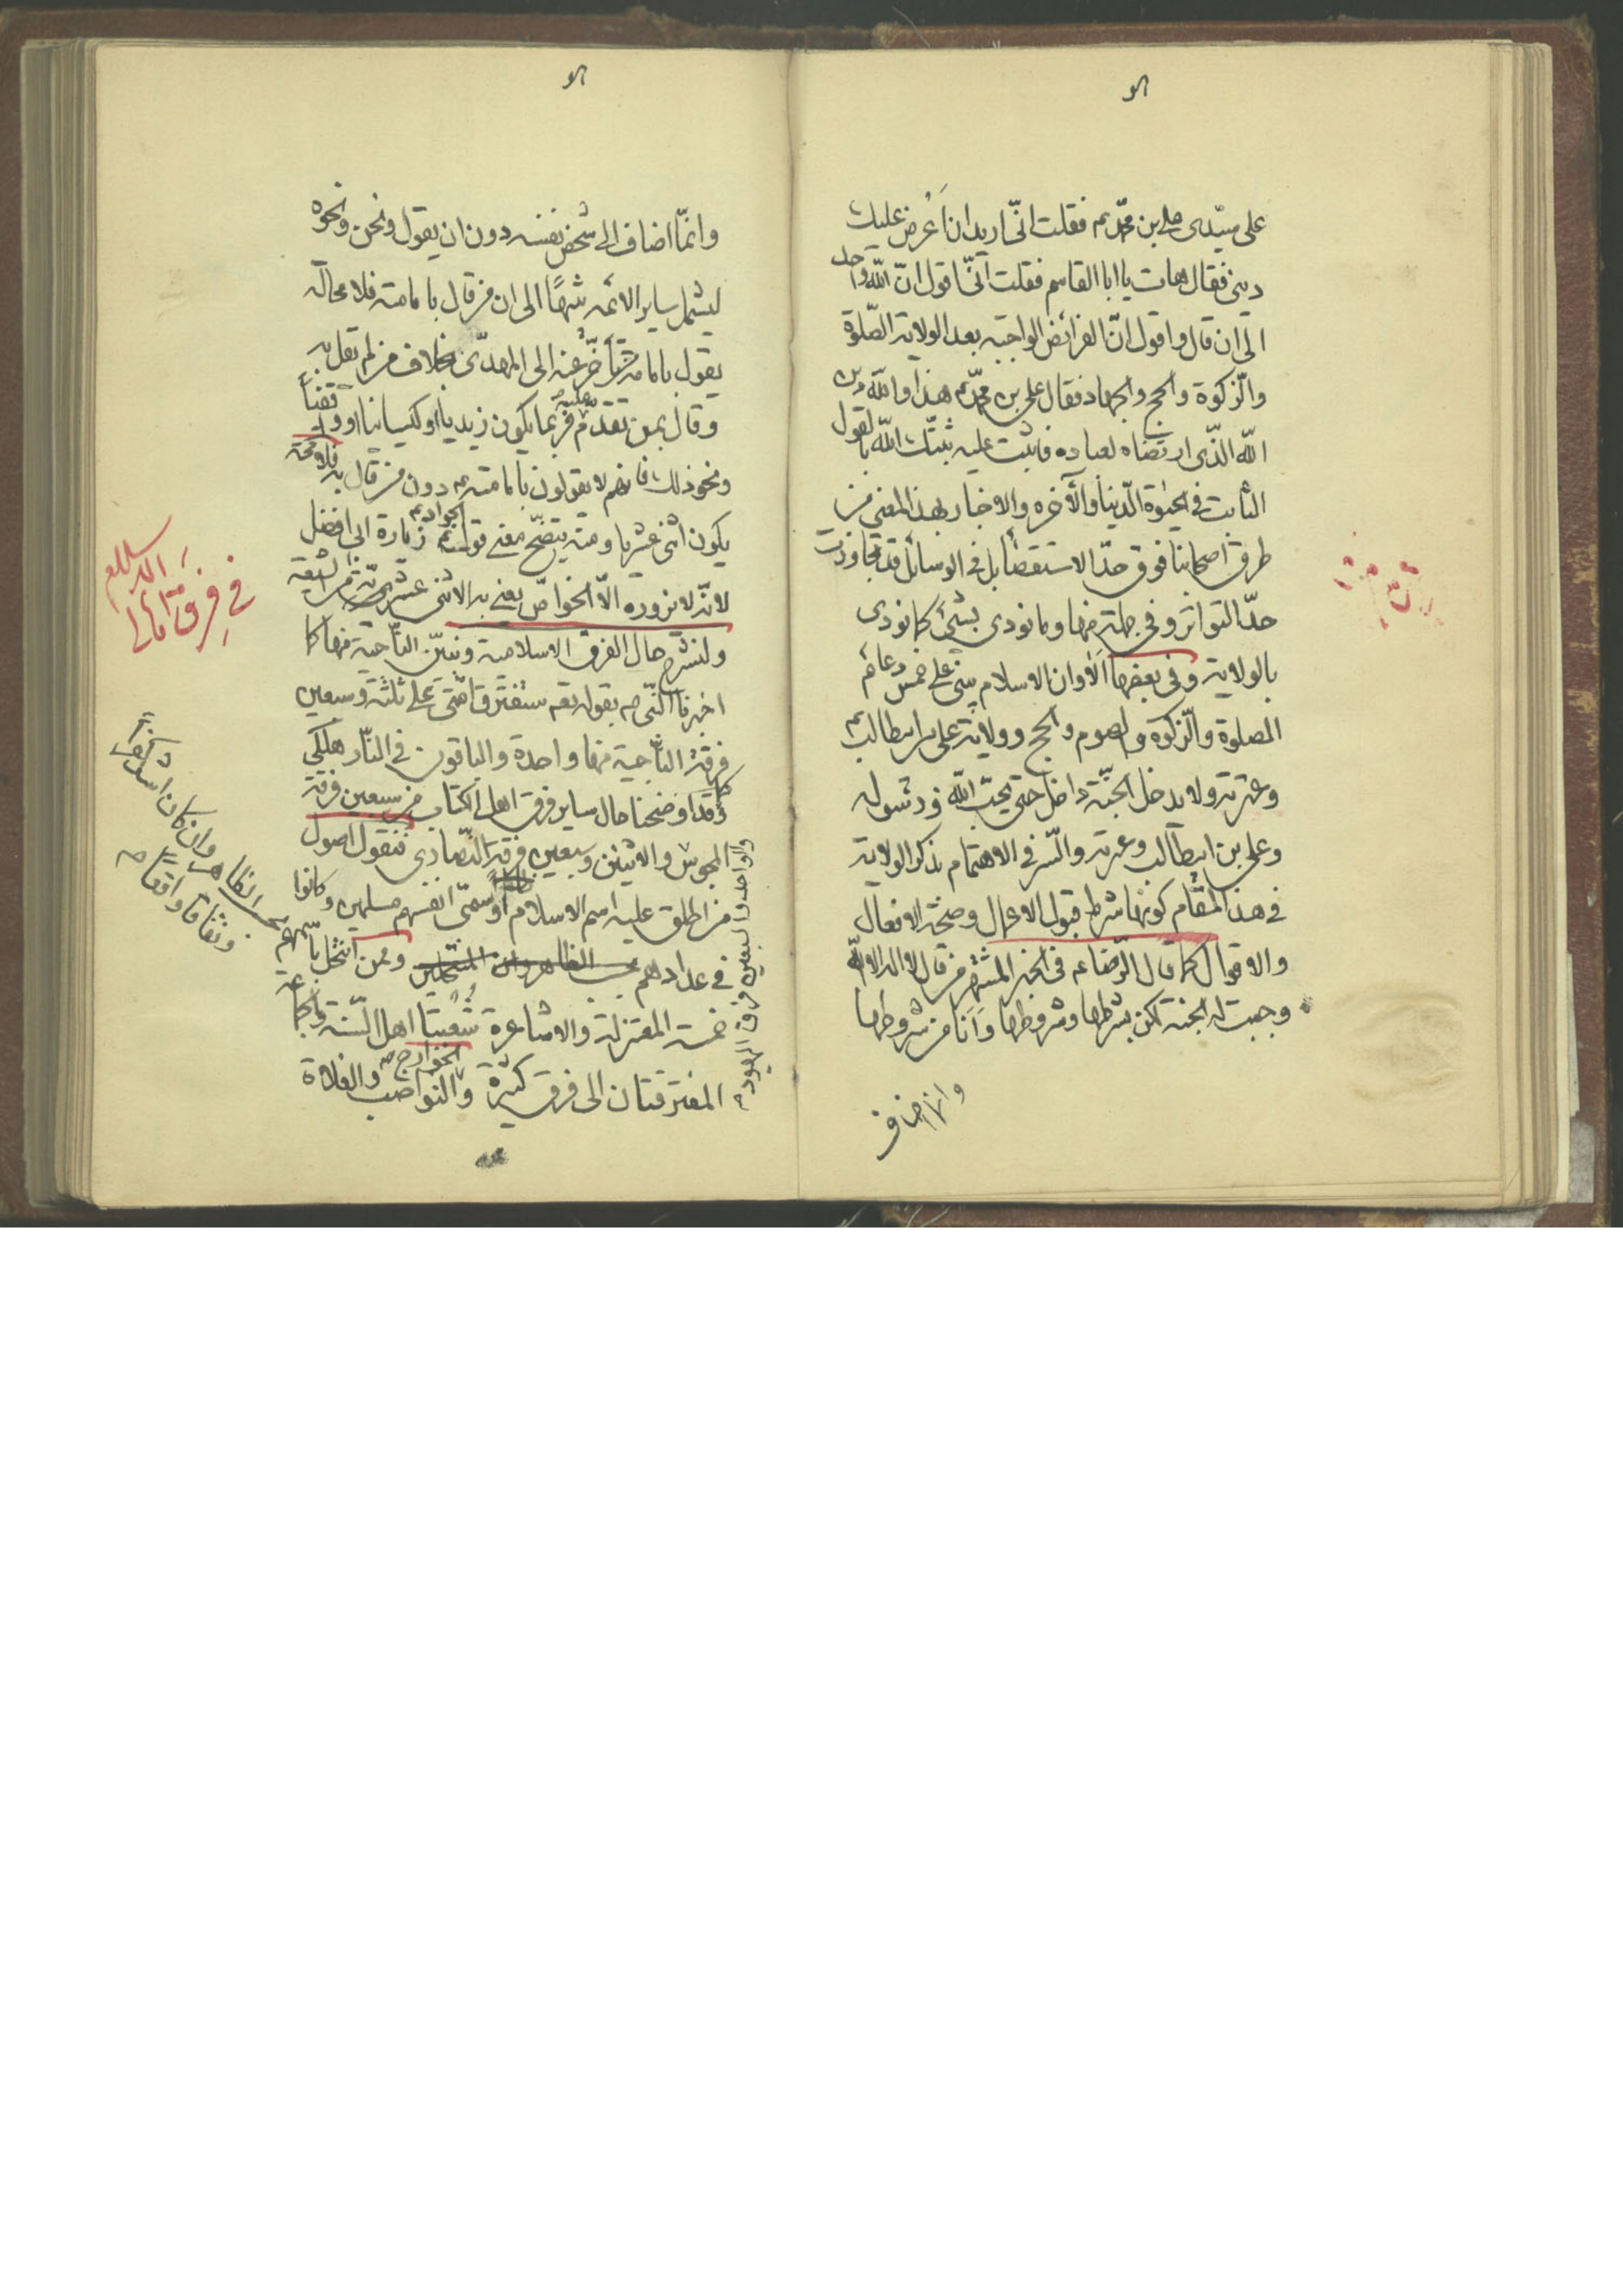 على سيّدى على بن محمّد ع فقلت انّى اريد ان اَعُرض عليك
دينى فقال هات يا ابا القاسم فقلت انّى اقول انّ اللّه واحد
الى ان قال و اقول انّ الفرائض الواجبه بعد الولاية الصّلوة
والزّكوة والحج والجهاد فقال على بن محمّد ع هذا واللّه دين
اللّه الّذى ارتضاه لعباده فاثبت عليه ثبّتك اللّه بالقول
الثابت فى الحيوة الدّنيا والآخره والاخبار بهذا المعنى من
طرق اصحابنا فوق حدّ الاستقصا بل فى الوسائل قد تجاوزت
حدّ التواتر وفى جملة منها وما نودى بشئ كما نودى
بالولاية وفى بعضها اَلٰا وان الاسلام بنى على خمس دعائم
الصلوة والزّكوة والصوم والحج وولاية على بن ابيطالب ع
وعترته ولا يدخل الجنّة داخل حتى يحبّ اللّه ورسوله
وعلى بن ابيطالب وعترته والسّر فى الاهتمام بذكر الولاية
فى هذا المقام كونها شرط قبول الاعمال وصحّة الافعال
والاقوال كما قال الرّضا ع فى الخبر المشتهر من قال لا اله الا اللّه
وجبت له الجنة لكن بشرطها وشروطها وَاَنَا من شروطها
وانّما اضاف
وانّما اضاف الى شخص نفسه دون ان يقول ونحن ونحوه
ليشمل ساير الائمه تنبيهًا الى ان من قال بامامته فلا محالة
يقول بامامة من تأخّر عنه الى المهدىّ بخلاف من لم يقل به
وقال بمن تقدّم عليه فربما يكون زيديا او كيسانيا او واقفيّا
ونحو ذلك فانهم لا يقولون بامامته ع دون من قال به فلا محة
يكون اثنى عشريا ومنه يتضح معنى قول الجواد ع زيارة ابى افضل
لانّه لا يزوره الّا الخواصّ يعنى به الاثنى عشريّة من الشيعة
ولنشرح حال الفرق الاسلامية ونبيّن النّاجية منها كما
اخبرنا النّبى ص بقوله ستفترق امّتى على ثلثة وسبعين
فرقة النّاجية منها واحدة والباقون فى النّار هلكى
كما قد اوضحنا حال ساير فرق اهل الكتاب من سبعين فرقة
المجوس والاثنين وسبعين فرقة النّصارى فنقول اصول
والواحد والسبعين فرق اليهود
من اطلق عليه اسم الاسلام او سمّى انفسهم مسلمين وكانوا
فى عدادهم وممن انتحل باسمهم
بحسب الظاهر وان كان اشد كفراً
ونفاقا واقعا صح
خمسة المعتزلة والاشاعرة شُعبتا اهل السّنة والجماعة
المفترقتان الى فرق كثيرة والخوارج والنواصب والغلاة